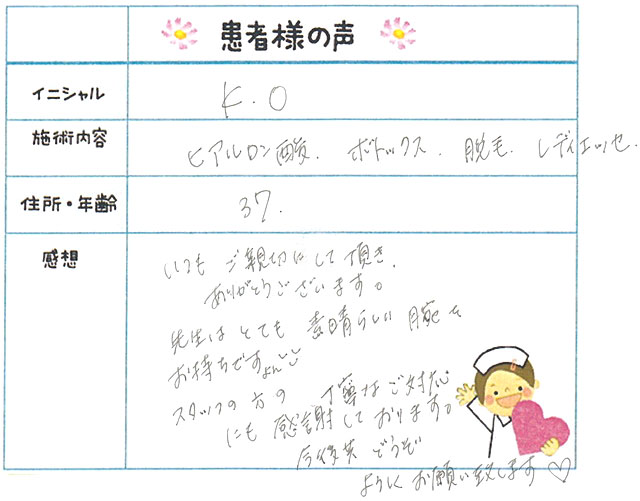 患者様の声
イニシャル
K.O
施術内容
ヒアルロン酸. ボトックス. 脱毛. レディエッセ.
住所・年齢
37.
感想
いつも ご親切にして頂き.
ありがとうございます。
先生は とても 素晴らしい 腕を
お持ちですよん
スタッフの 方の 丁寧な ご対応
にも 感謝しております。
今後共 どうぞ
よろしく お願い致します♡